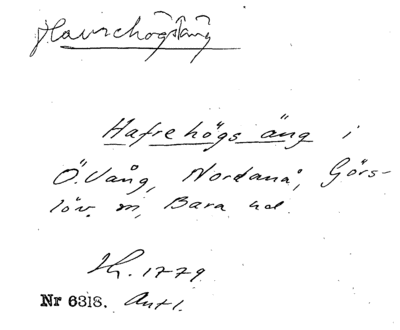 Havrehögsäng
Hafrehögs äng i
Ö. Vång, Nordanå, Görs-
löv. m, Bara hd.
Lh. 1779
Nr 6318. Antl.